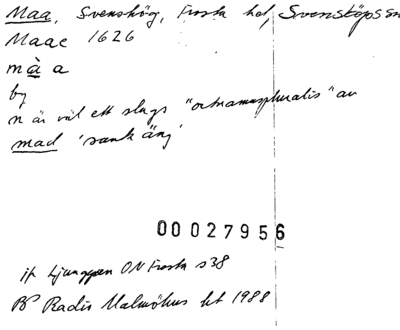 Maa, Svenskög, Frosta hd, Svensköps sn
Maae 1626
må a
by
n är väl ett slags "ortnamnspluralis" av
mad 'sank äng'
00027956
if Ljunggren ON Frosta s 38
PS Radis Malmöhus lst 1988